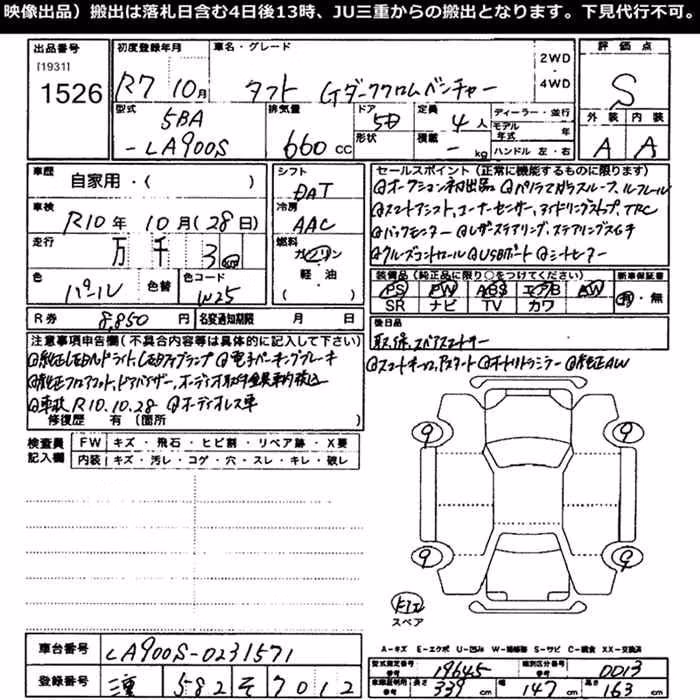 映像出品）搬出は落札日含む4日後13時、JU三重からの搬出となります。下見代行不可。
出品番号 初度登録年月 車名・グレード 2WD・4WD 評価点
[1931] 1526 R7 10月 タフト Gダーククロムベンチャー S
型式 排気量 ドア 形状 定員 積載 ディーラー・並行 外装 内装
5BA-LA900S 660cc 5D 4人 -kg モデル年式 年 A A
ハンドル 左・右
車歴 自家用・( ) シフト DAT
車検 R10年10月(28日) 冷房 AAC
走行 万 千 3km 燃料 ガソリン 軽油 ( )
色 パール 色替 色コード W25
R券 8,850円 名変通知期限 月 日
セールスポイント(正常に機能するものに限ります)
◎オークション初出品 ◎パノラマガラスルーフ、ルーフレール
◎スマートアシスト、コーナーセンサー、アイドリングストップ、TRC
◎バックモニター ◎レザーステアリング、ステアリングスイッチ
◎クルーズコントロール ◎USBポート ◎シートヒーター
装備品(純正品に限り○をつけてください) 新車保証書
PS PW ABS エアB AW 有・無
SR ナビ TV カワ
後日品
取、保、スペアスマートキー
◎スマートキー◎、Pスタート ◎オートリトラミラー ◎純正AW
注意事項申告欄(不具合内容等は具体的に記入して下さい)
◎純正LEDヘッドライト、LEDフォグランプ ◎電子パーキングブレーキ
◎純正フロアマット、ドアバイザー、オーディオ取付金具車内積込
◎車検R10.10.28 ◎オーディオレス車
修復歴 有(箇所
検査員記入欄 FW キズ・飛石・ヒビ割・リペア跡・X要
内装 キズ・汚レ・コゲ・穴・スレ・キレ・破レ
9 9
9 9
スペア
A-キズ E-エクボ U-凹凸 W-補修跡 S-サビ C-腐食 XX-交換済
車台番号 LA900S-0231571
登録番号 三重 582 そ 7012
型式指定番号 参考 19645 類別区分番号 参考 0013
車庫証明用 参考 長さ 339cm 幅 147cm 高さ 163cm